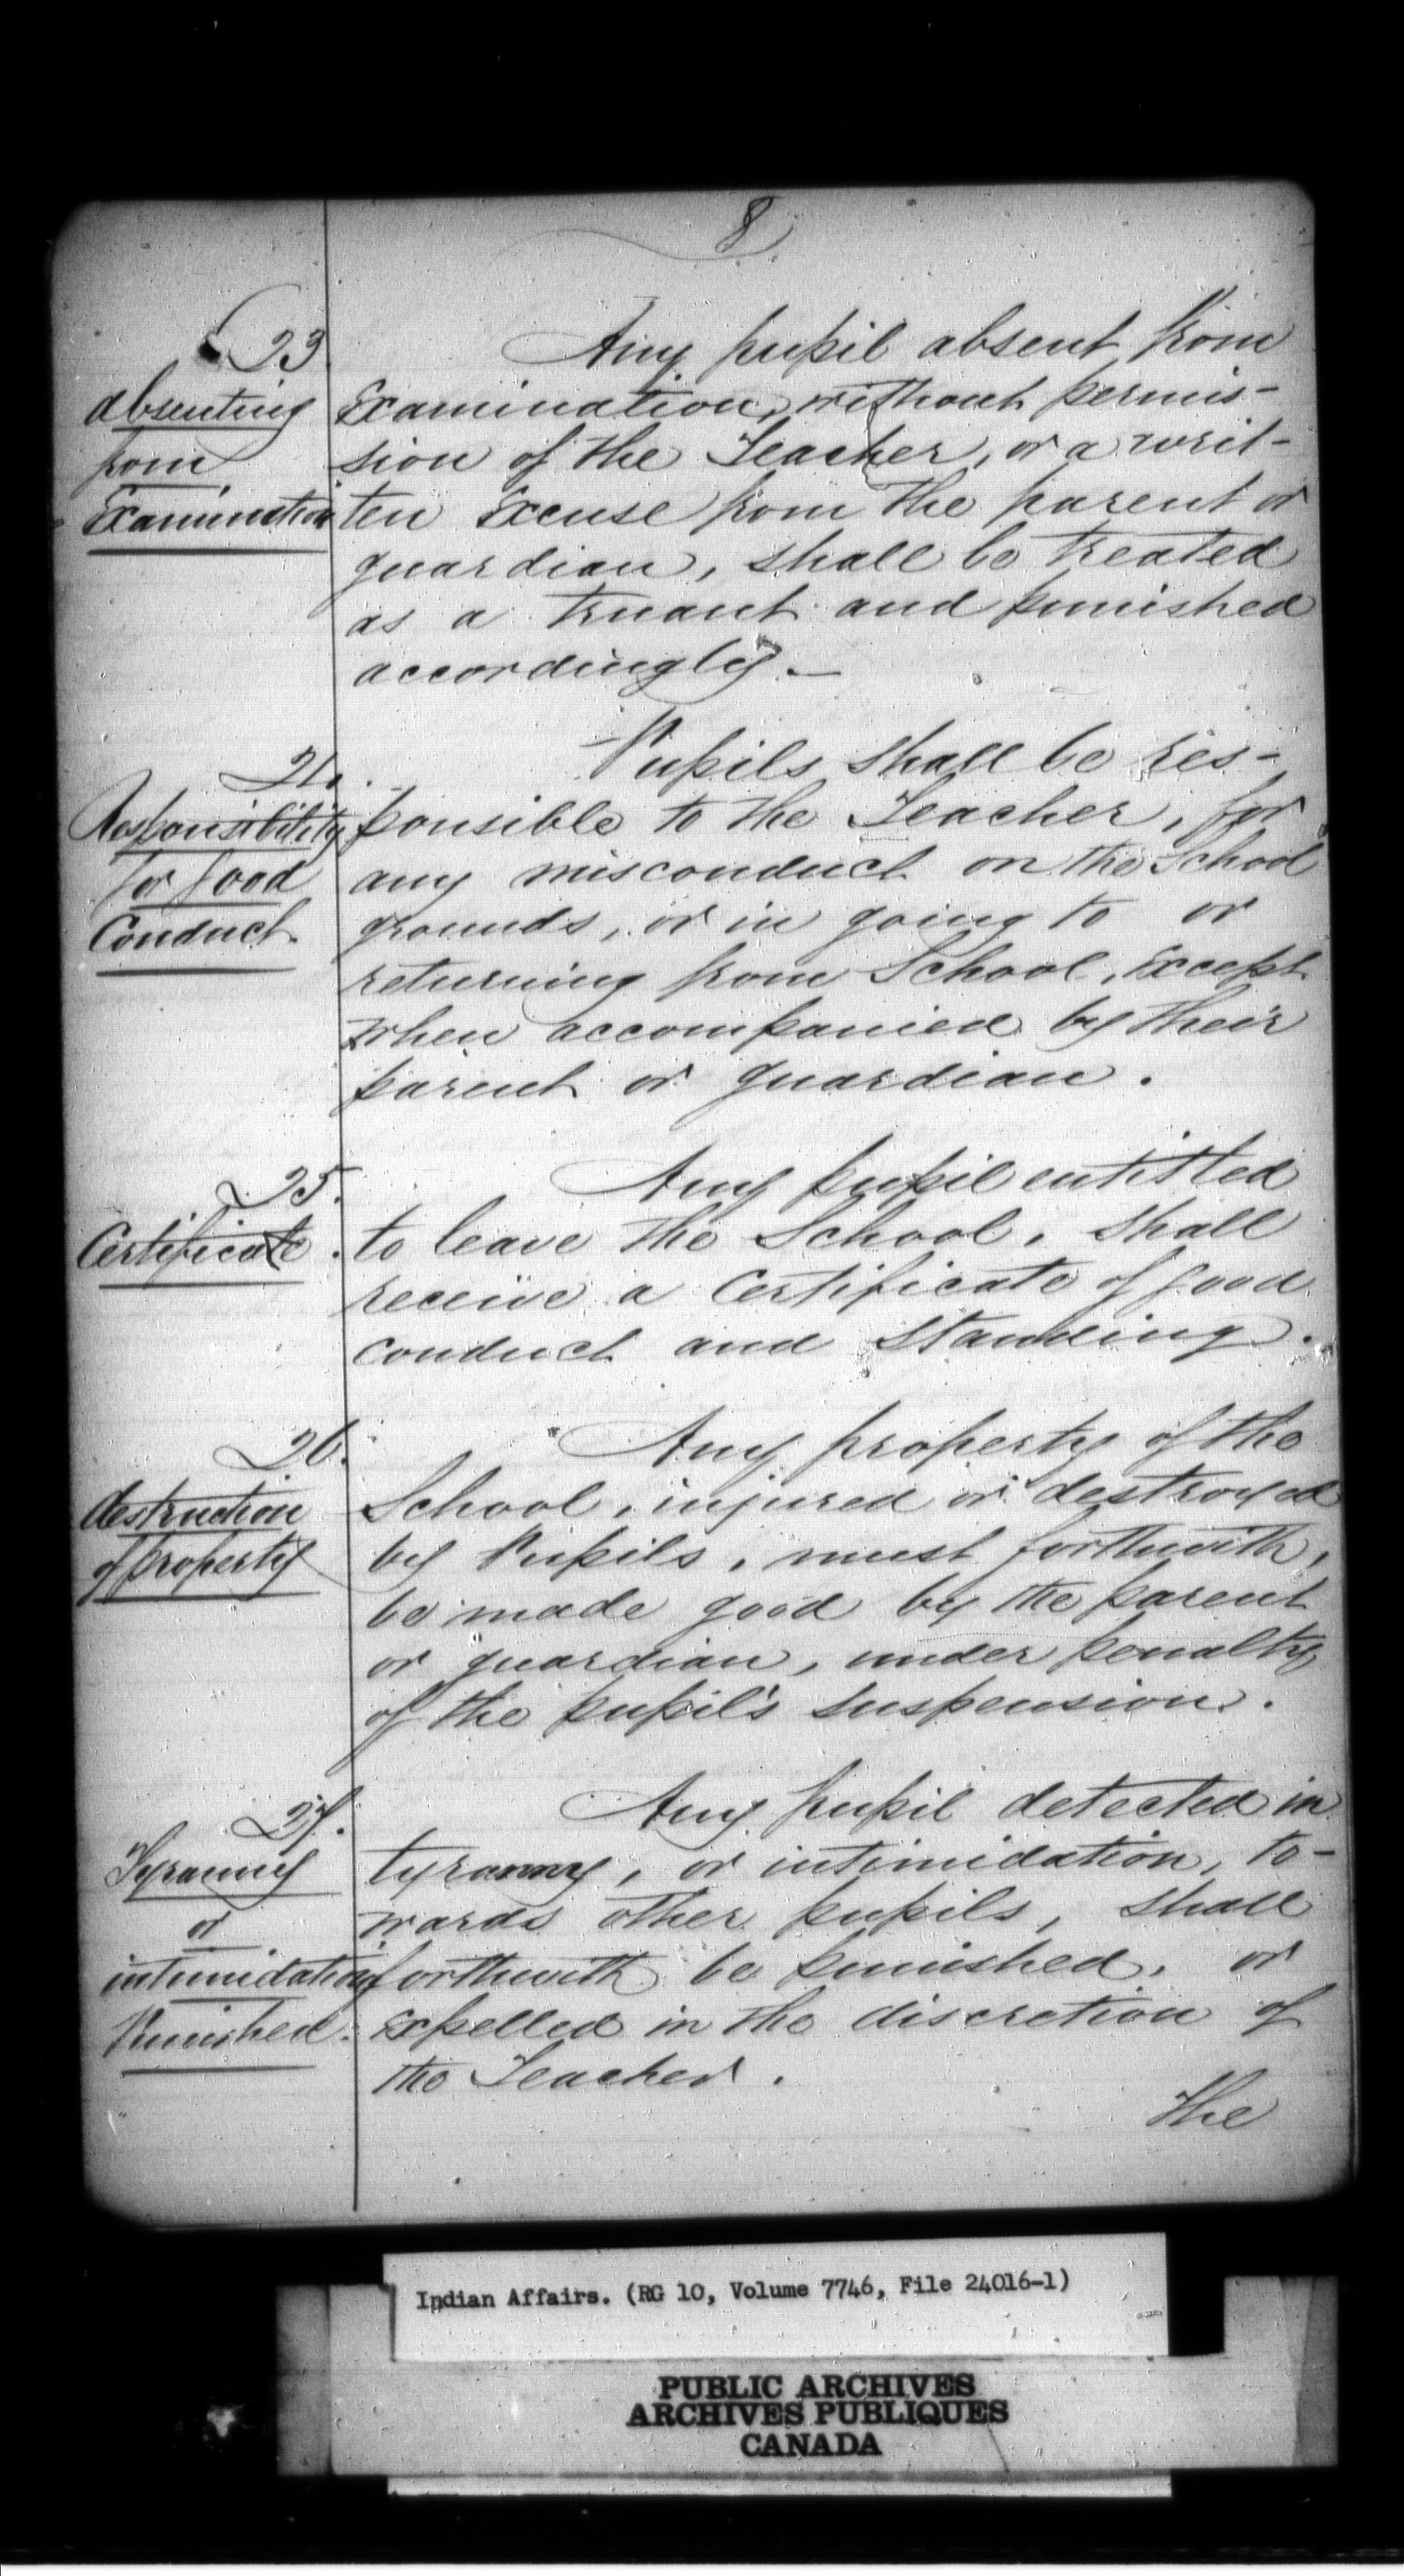 8
23
absenting
from
Examination
Any pupil absent from
Examination, without permis-
sion of the Teacher, or a writ-
ten Excuse from the parent or
guardian, shall be treated
as a truant and punished
accordingly.—
24.
Responsibility
for good
Conduct.
Pupils shall be res-
ponsible to the Teacher, for
any misconduct on the School
grounds, or in going to or
returning from School, Except
when accompanied by their
parent or guardian.
25.
Certificate.
Any pupil entitled
to leave the School, shall
receive a Certificate of good
conduct and standing.
26.
destruction
of property
Any property of the
School, injured or destroyed
by Pupils, must forthwith,
be made good by the parent
or guardian, under penalty
of the pupil's suspension.
27.
Tyranny
or
intimidation
Punished.
Any pupil detected in
tyranny, or intimidation, to-
wards other pupils, shall
forthwith be punished, or
Expelled in the discretion of
the Teacher.
The
Indian Affairs. (RG 10, Volume 7746, File 24016-1)
PUBLIC ARCHIVES
ARCHIVES PUBLIQUES
CANADA